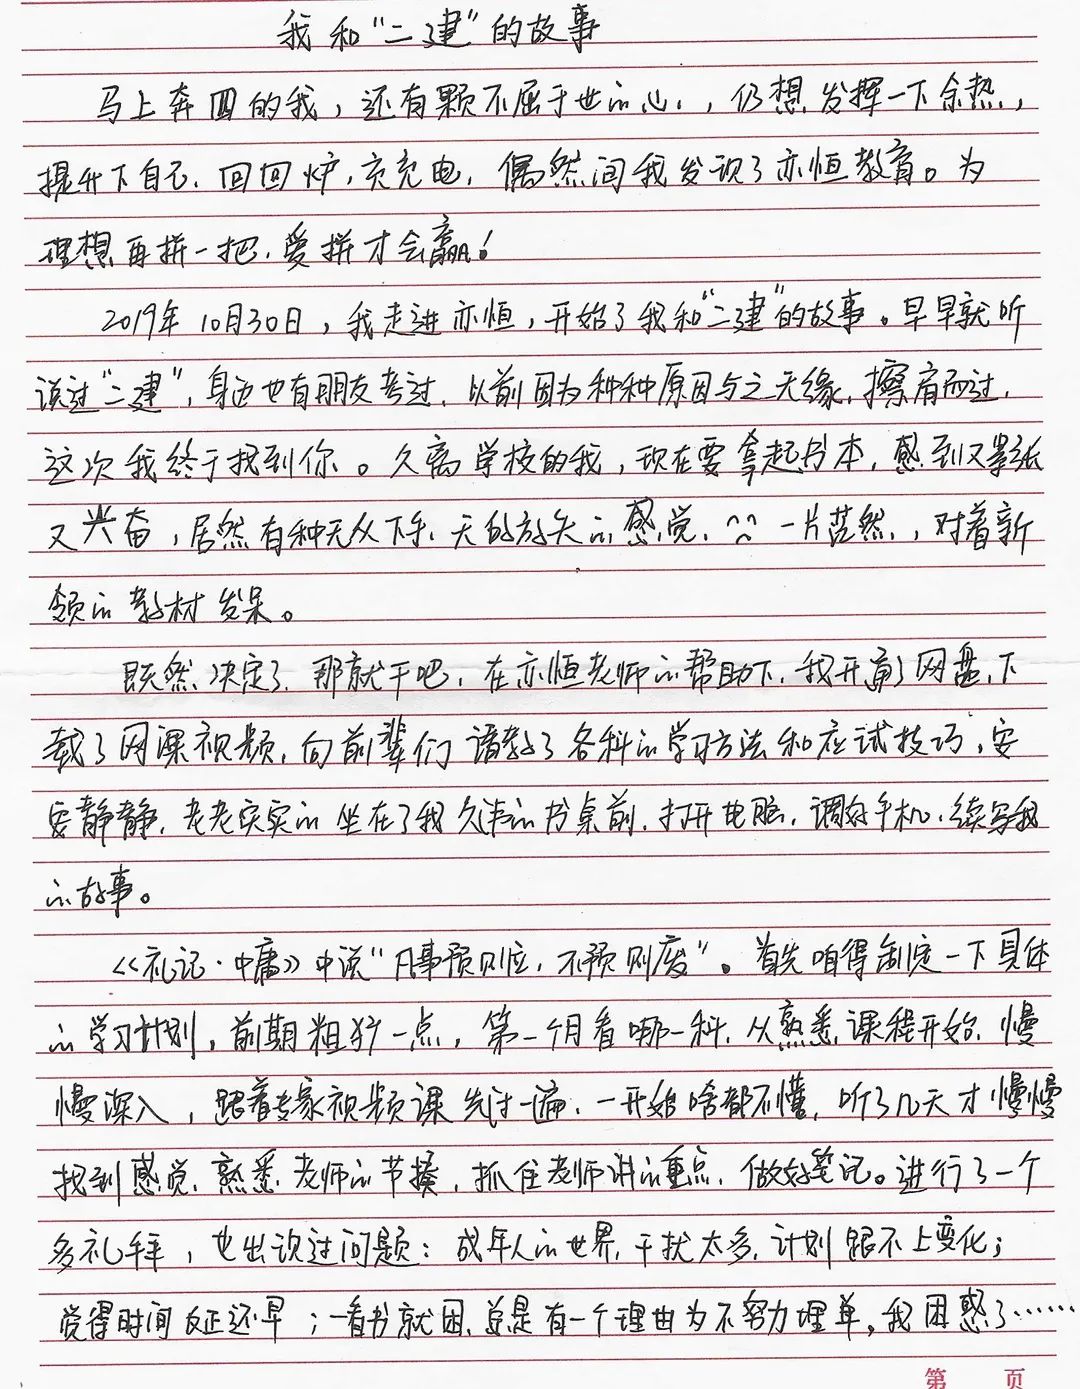 我和“二建”的故事
马上奔四的我，还有颗不屈于世的心，仍想发挥一下余热，
提升下自己，回回炉，充充电，偶然间我发现了亦恒教育。为
理想再拼一把，爱拼才会赢！
2019年10月30日，我走进亦恒，开始了我和“二建”的故事。早早就听
说过“二建”，身边也有朋友考过，以前因为种种原因与之无缘，擦肩而过，
这次我终于找到你。久离学校的我，现在要拿起书本，感到又紧张
又兴奋，居然有种无从下手，无的放矢的感觉，^^一片茫然，对着新
领的教材发呆。
既然决定了，那就干吧，在亦恒老师的帮助下，我开育了网盘，下
载了网课视频，向前辈们请教了各科的学习方法和应试技巧，安
安静静，老老实实的坐在了我久违的书桌前，打开电脑，调好手机，续写我
的故事。
《礼记·中庸》中说“凡事预则立，不预则废”。首先咱得制定一下具体
的学习计划，前期粗犷一点，第一个月看哪一科，从熟悉课程开始，慢
慢深入，跟着专家视频课先过一遍，一开始啥都不懂，听了几天才慢慢
找到感觉，熟悉老师的节揍，抓住老师讲的重点，做好笔记。进行了一个
多礼拜，也出现过问题：成年人的世界，干扰太多，计划跟不上变化；
觉得时间反正还早；一看书就困，总是有一个理由为不努力埋单，我困惑了……
第 页